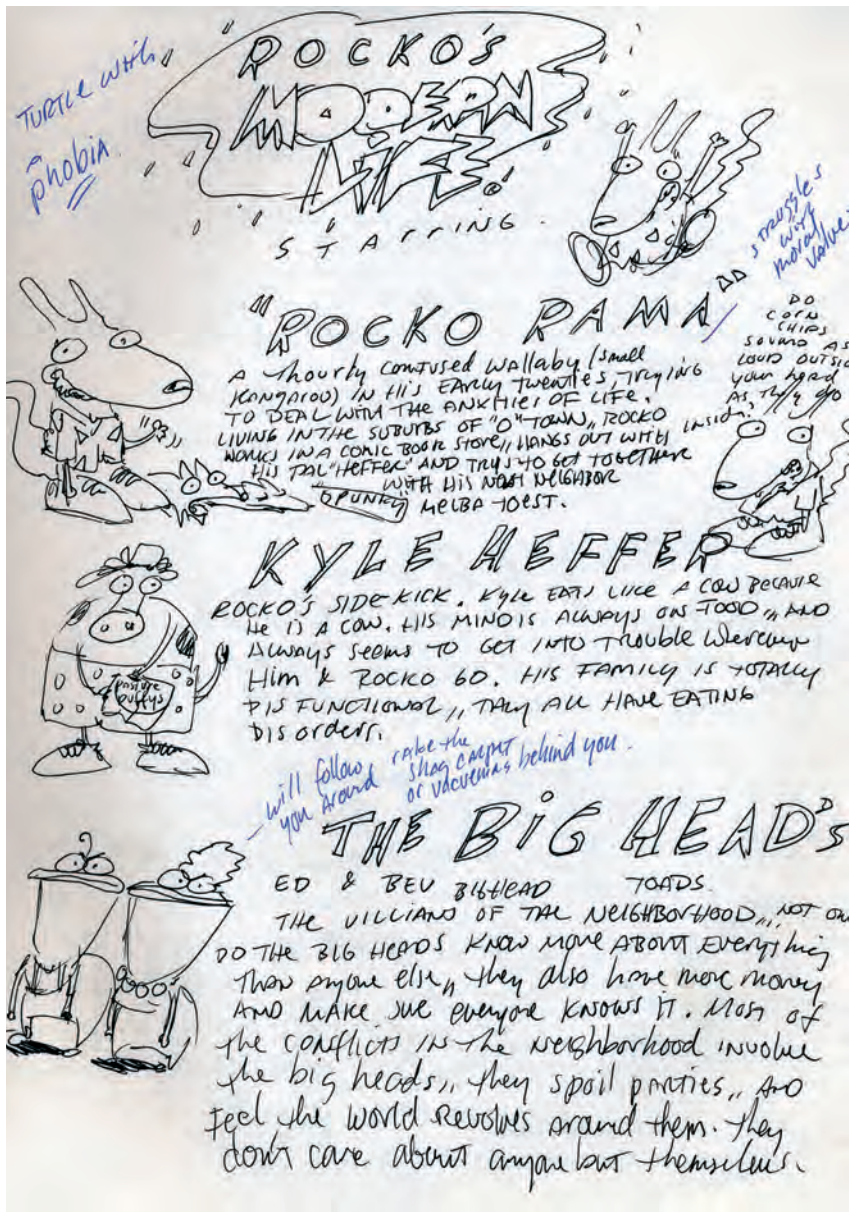 TURTLE WITH
a
phobia
ROCKO'S
MODERN
LIFE!
STARRING
STRUGGLES
WITH
moral
value
"ROCKO RAMA"
A thourly confused wallaby (small
kangaroo) in his early twenties, trying
TO DEAL WITH THE ANXTIES OF LIFE.
LIVING IN THE SUBURBS OF "O" TOWN,, ROCKO
WORKS IN A COMIC BOOK STORE,, HANGS OUT WITH
HIS PAL "HEFFER" AND TRYS TO GET TOGETHER
WITH HIS NEXT NEIGHBOR
MELBA TOEST.
DO
CORN
CHIPS
SOUND AS
LOUD OUTSID
your head
AS, They do
inside?
"SPUNKY"
KYLE HEFFER
ROCKO'S SIDE KICK. Kyle EATS LIKE A COW BECAUSE
He IS A COW. HIS MIND IS ALWAYS ON FOOD,, AND
ALWAYS Seems TO GET INTO TROUBLE Wherever
Him & ROCKO GO. HIS FAMILY IS TOTALLY
DIS FUNCTIONAL,, THEY ALL HAVE EATING
DIS orders.
Pasture
Puffys
will follow
you around
rake the
shag carpet
or vacueming behind you.
THE BiG HEAD's
ED & BEV BIGHEAD TOADS.
THE VILLIANS OF THE NEIGHBORHOOD,, NOT ON
DO THE BIG HEADS KNOW MORE ABOUT Everything
THAN Anyone else,, they also have more money
AND MAKE SUE everyone KNOWS IT. Most of
the CONFLICTS IN the Neighborhood involve
the big heads,, they spoil parties,, AND
Feel the world Revolves around them. they
don't care about anyone but themselves.